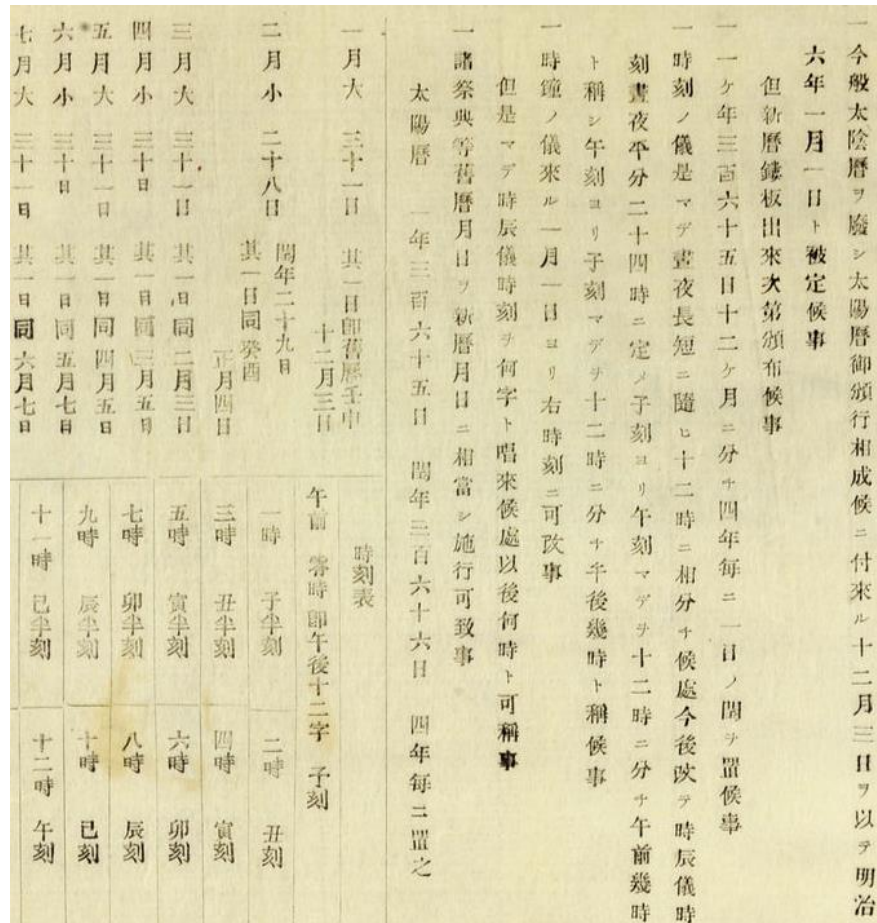 一今般太陰暦ヲ廢シ太陽暦御頒行相成候ニ付來ル十二月三日ヲ以テ明治
六年一月一日ト被定候事
但新暦鏤板出來次第頒布候事
一一ケ年三百六十五日十二ケ月ニ分チ四年毎ニ一日ノ閏ヲ置候事
一時刻ノ儀是マデ晝夜長短ニ隨ヒ十二時ニ相分チ候處今後改テ時辰儀時
刻晝夜平分二十四時ニ定メ子刻ヨリ午刻マデヲ十二時ニ分チ午前幾時
ト稱シ午刻ヨリ子刻マデヲ十二時ニ分チ午後幾時ト稱候事
一時鐘ノ儀來ル一月一日ヨリ右時刻ニ可改事
但是マデ時辰儀時刻ヲ何字ト唱來候處以後何時ト可稱事
一諸祭典等舊暦月日ヲ新暦月日ニ相當シ施行可致事
太陽暦 一年三百六十五日 閏年三百六十六日 四年毎ニ置之
一月大 三十一日 其一日即舊暦壬申
十二月三日
二月小 二十八日 閏年二十九日
其一日同癸酉
正月四日
三月大 三十一日 其一日同二月三日
四月小 三十日 其一日同三月五日
五月大 三十一日 其一日同四月五日
六月小 三十日 其一日同五月七日
七月大 三十一日 其一日同六月七日
時刻表
午前 零時即午後十二字 子刻
一時 子半刻 二時 丑刻
三時 丑半刻 四時 寅刻
五時 寅半刻 六時 卯刻
七時 卯半刻 八時 辰刻
九時 辰半刻 十時 巳刻
十一時 巳半刻 十二時 午刻